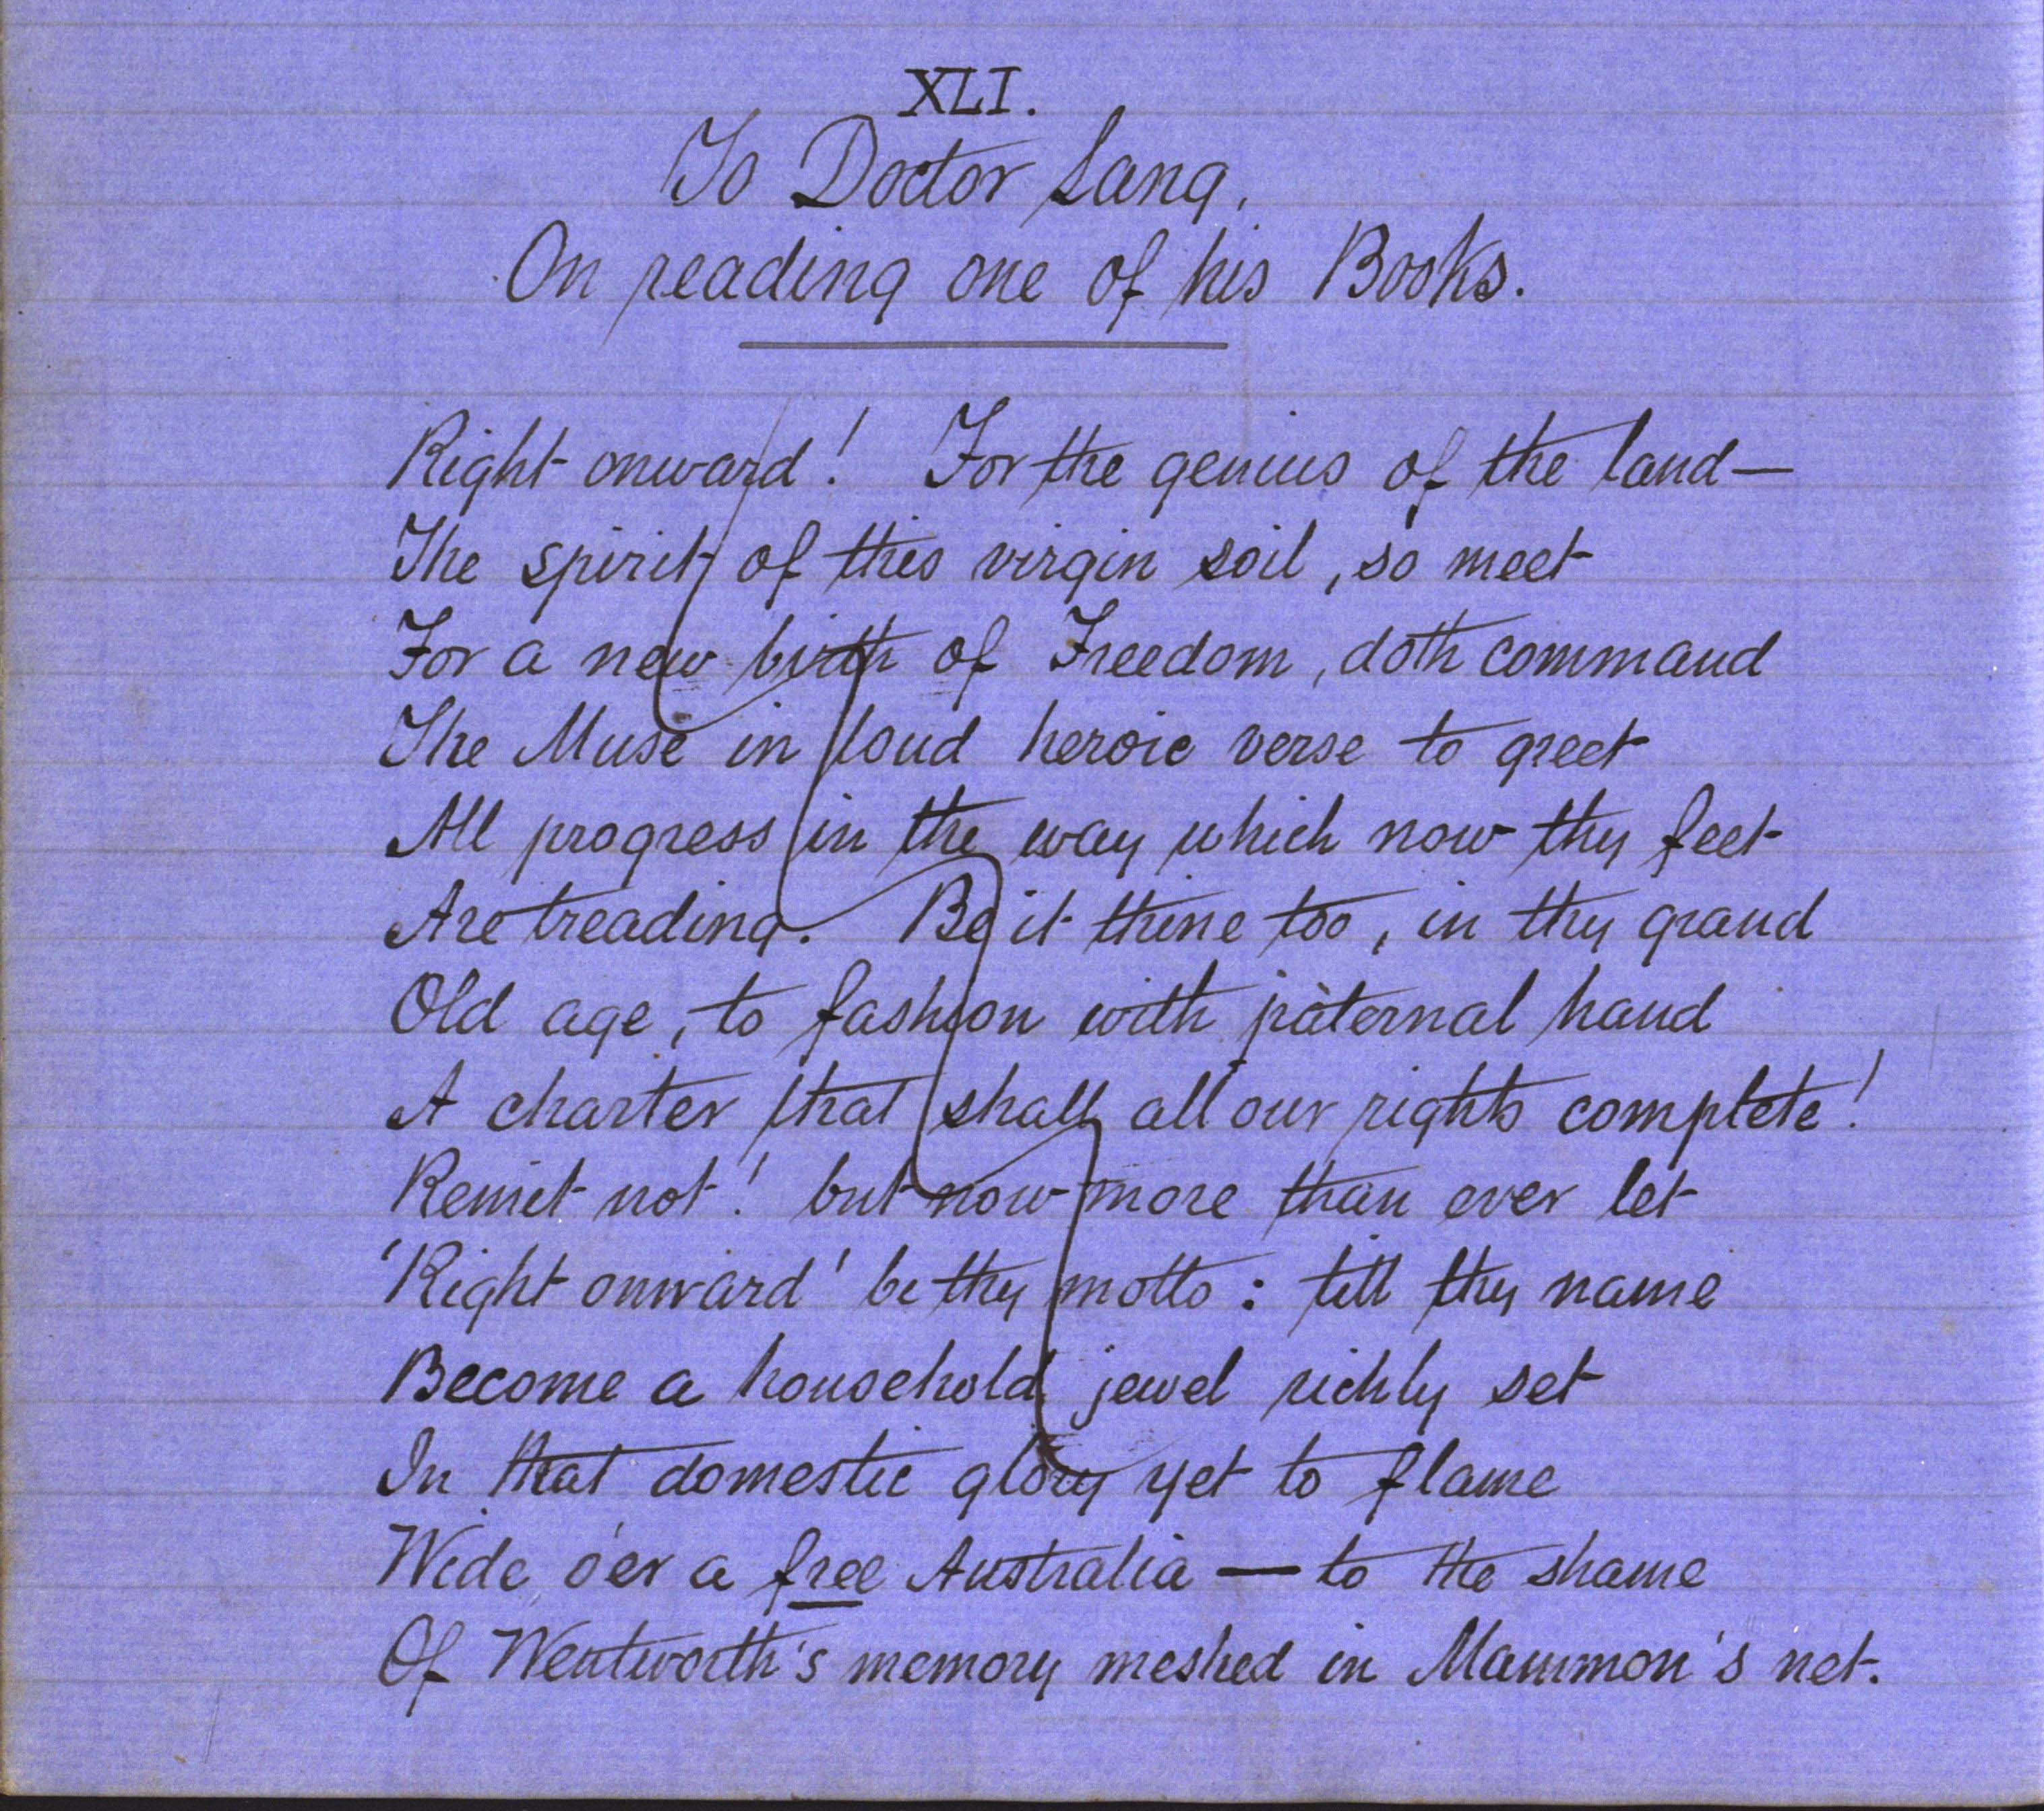 XLI.
To Doctor Lang,
On reading one of his Books.
Right onward! For the genius of the land—
The spirit of this virgin soil, so meet
For a new birth of Freedom, doth command
The Muse in loud heroic verse to greet
All progress in the way which now thy feet
Are treading. Be it thine too, in thy grand
Old age, to fashion with paternal hand
A charter that shall all our rights complete!
Remit not! but now more than ever let
'Right onward' be thy motto: till thy name
Become a household jewel richly set
In that domestic glory yet to flame
Wide o'er a free Australia — to the shame
Of Wentworth's memory meshed in Mammon's net.